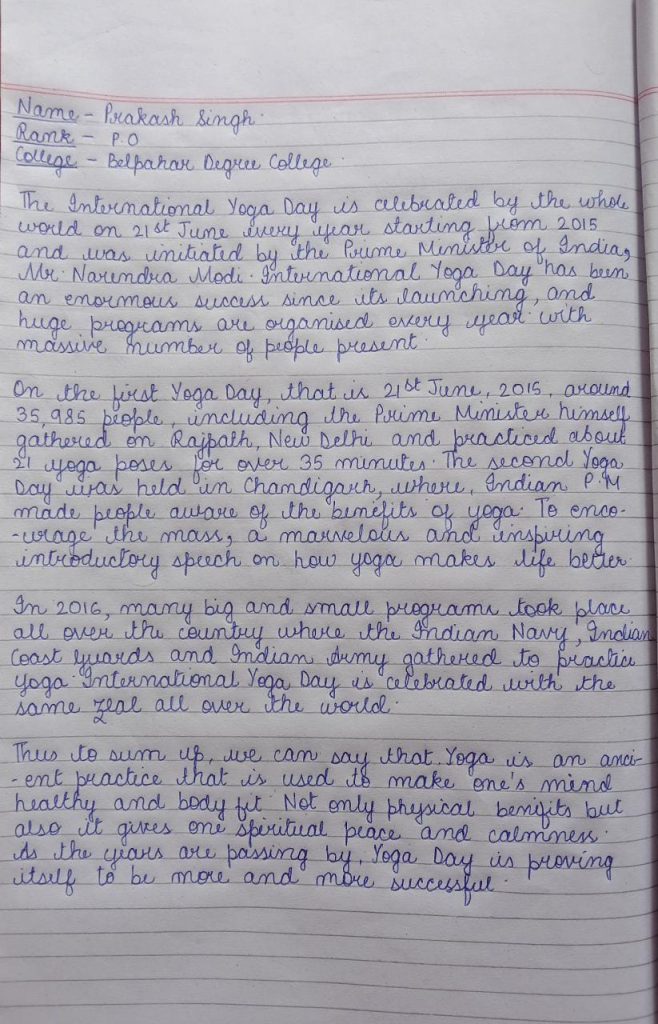 Name - Prakash Singh.
Rank - P.O
College - Belpahar Degree College.
The International Yoga Day is celebrated by the whole
world on 21st June every year starting from 2015
and was initiated by the Prime Minister of India,
Mr. Narendra Modi. International Yoga Day has been
an enormous success since its launching, and
huge programs are organised every year with
massive number of people present.
On the first Yoga Day, that is 21st June, 2015, around
35,985 people, including the Prime Minister himself
gathered on Rajpath, New Delhi and practiced about
21 yoga poses for over 35 minutes. The second Yoga
Day was held in Chandigarh, where, Indian P.M
made people aware of the benefits of yoga. To enco-
-urage the mass, a marvelous and inspiring
introductory speech on how yoga makes life better.
In 2016, many big and small programs took place
all over the country where the Indian Navy, Indian
Coast guards and Indian Army gathered to practice
yoga. International Yoga Day is celebrated with the
same zeal all over the world.
Thus to sum up, we can say that Yoga is an anci-
-ent practice that is used to make one's mind
healthy and body fit. Not only physical benifits but
also it gives one spiritual peace and calmness.
As the years are passing by, Yoga Day is proving
itself to be more and more successful.